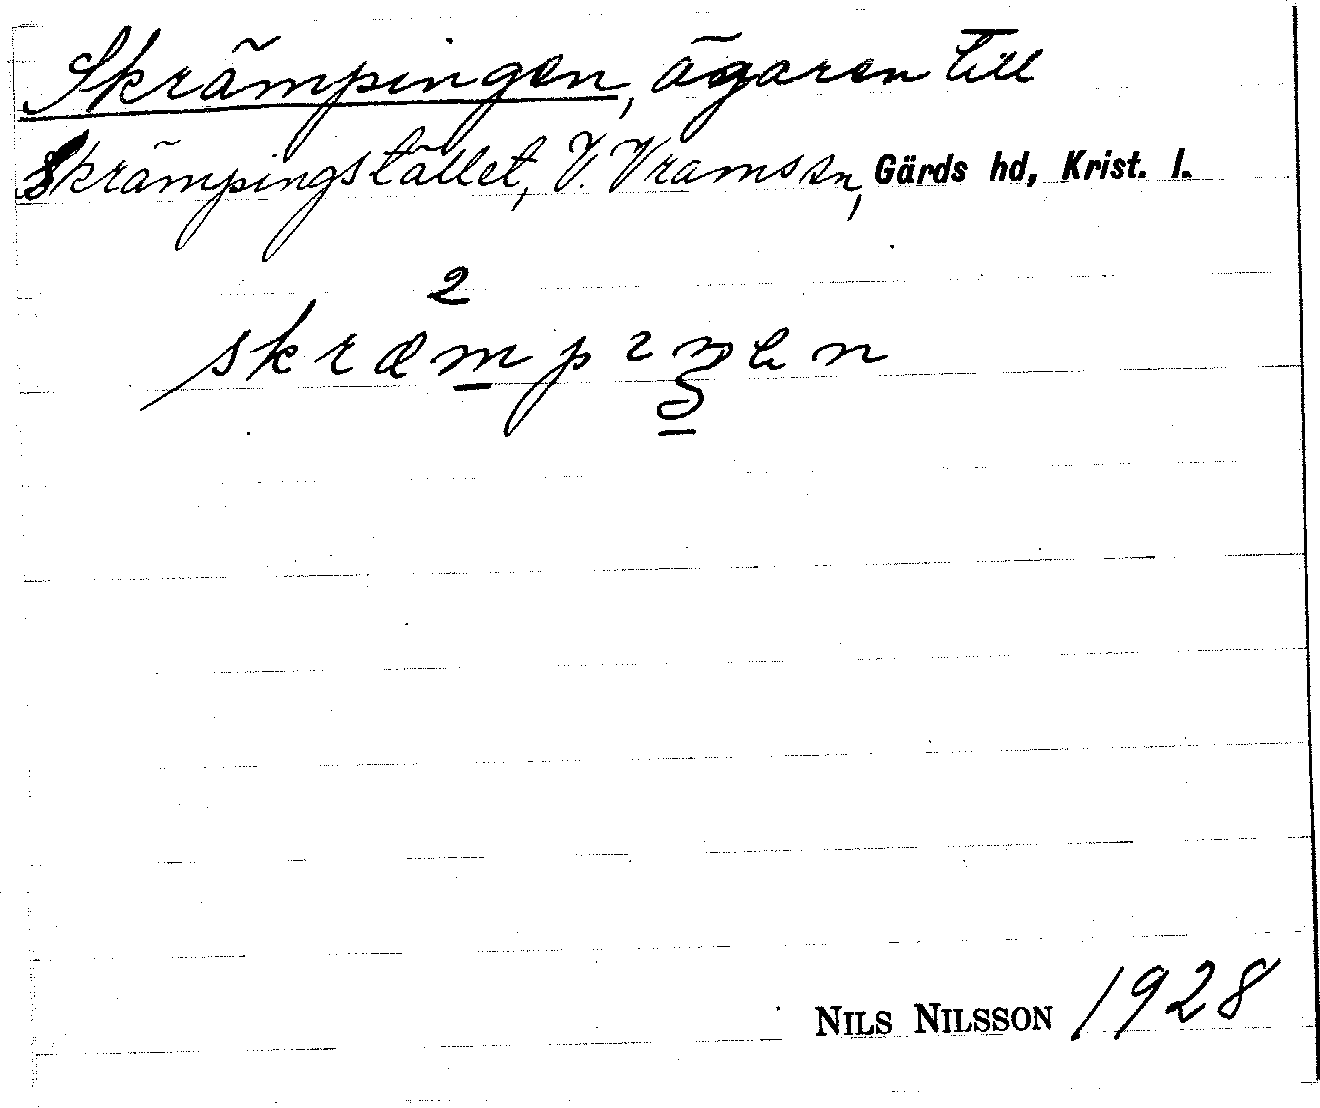 Skrämpingen, ägaren till
Skrämpingstället, V. Vrams sn, Gärds hd, Krist. l.
2
NILS NILSSON 1928